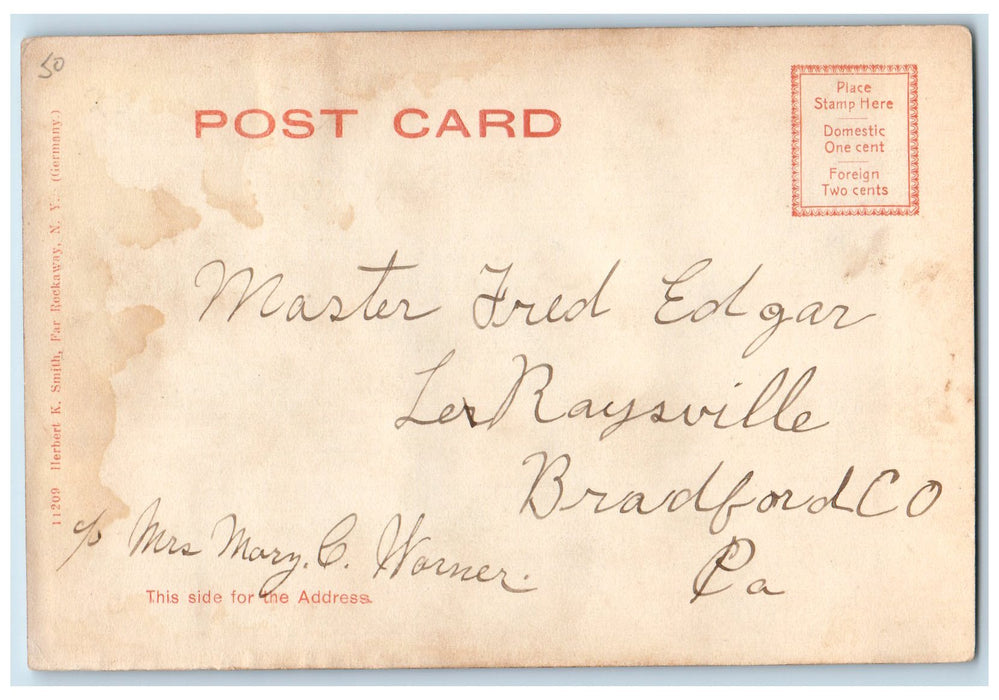 50
POST CARD
Place
Stamp Here
Domestic
One cent
Foreign
Two cents
11209 Herbert K. Smith, Far Rockaway, N. Y. (Germany.)
Master Fred Edgar
LeRaysville
Bradford CO
Pa
c/o Mrs Mary. C. Warner.
This side for the Address.